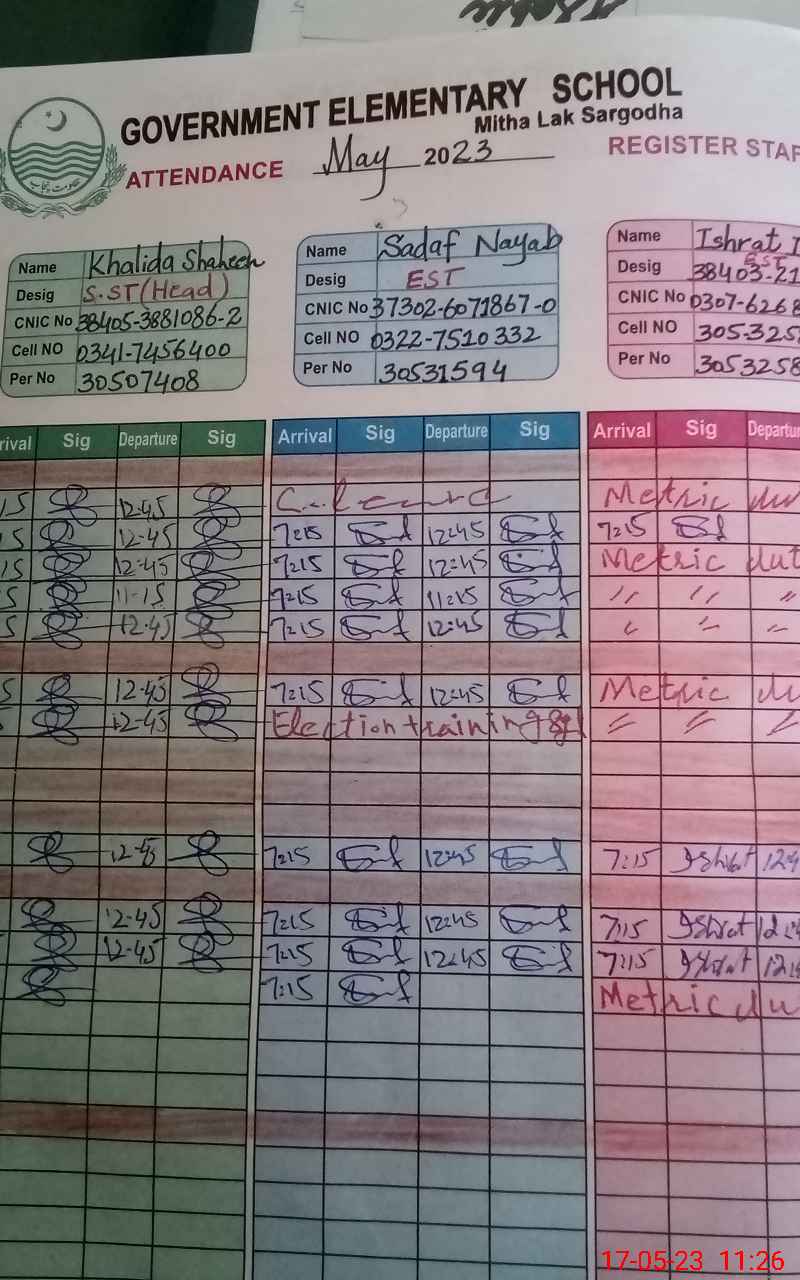 GOVERNMENT ELEMENTARY SCHOOL
Mitha Lak Sargodha
ATTENDANCE May 2023 REGISTER STAF
حکومت پنجاب
Name Khalida Shaheen
Desig S.ST (Head)
CNIC No 38405-3881086-2
Cell NO 0341-7456400
Per No 30507408
Name Sadaf Nayab
Desig EST
CNIC No 37302-6071867-0
Cell NO 0322-7510332
Per No 30531594
Name Ishrat I
Desig EST 38403-21
CNIC No 0307-6268
Cell NO 305325
Per No 3053258
rival Sig Departure Sig Arrival Sig Departure Sig Arrival Sig Departur
15 12-45 Metric du
5 12-45 7:15 12:45 7:15
15 12-45 7:15 12:45 Metric dut
5 11-15 7:15 11:15 " " "
5 12-45 7:15 12:45
5 12-45 7:15 12:45 Metric du
12-45 Election training
12-45 7:15 12:45 7:15 Ishrat 12:4
12-45 7:15 12:45 7:15 Ishrat 12:4
12-45 7:15 12:45 7:15 Ishrat 12:4
7:15 Metric du
17-05-23 11:26